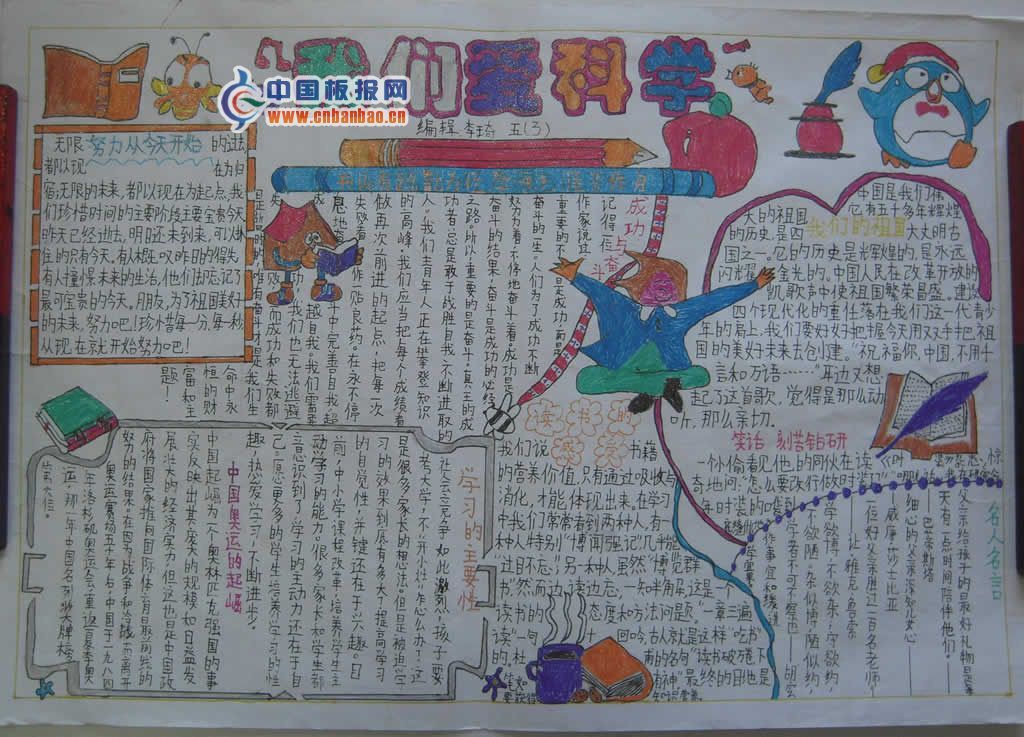 我们爱科学
中国板报网
www.cnbanbao.cn
编程 李琦 五(3)
无限 努力从今天开始 的过去
都以现在为归
宿,无限的未来,都以现在为起点,我
们珍惜时间的主要阶段主要宝贵今天
昨天已经过去,明日还未到来,可以抓
住的只有今天,有人相互叹昨日的得失,
有人憧憬未来的生活,他们却忘记了
最可宝贵的今天。朋友,为了祖国美好
的未来,努力吧!珍惜每一分,每一秒
从现在就开始努力吧!
成功与奋斗
记得一位
作家说过
重要的不是成功,而是
奋斗的一生。人们为了成功,不断
努力着,不停地奋斗着。成功是
奋斗的结果,奋斗是成功的必经
之路。所以,重要的是奋斗,真正的成
功者总是敢于战胜自我,不断进取的
人。我们青年人正在攀登知识
的高峰,我们应当把每个成绩看
做再次前进的起点,把每一次
失败看作一贴良药。在永不停
息地
中完善自我,超
越自我。我们需要
成功,我们也无法逃避
失败,而成功和失败都
是暂时的,唯有奋斗才是我们生
命中永
恒的财
富和主
题!
中国是我们伟
大的祖国,它有五千多年辉煌
的历史,是四 我们的祖国 大文明古
国之一。它的历史是光辉煌的,是永远
闪光耀金光的。中国人民在改革开放的
凯歌声中使祖国繁荣昌盛。建设
四个现代化的重任落在我们这一代青少
年的肩上,我们要好好把握今天用双手把祖
国的美好未来去创建。“祝福你,中国,不用千
言和万语……”耳边又想
起了这首歌,觉得是那么动
听,那么亲切。
笑话 刻苦钻研
一个小偷看见他的同伙在读
奇地问:“怎么改行做时
读书的
我们说 书籍
的营养价值,只有通过吸收与
消化,才能体现出来。在学习
中我们常常看到两种人,有一
种人特别“博闻强记”几乎能
“过目不忘;另一种人虽然“博览群
书”,然而边读边忘,一知半解,这是一个
读书的态度和方法问题。“一章三遍
读”,一句
回吟,古人就是这样“吃书”
的,杜甫的名句“读书破万卷,下
笔如有神”最终的目地是
学习的主要性
社会竞争如此激烈,孩子要
考大学,不“开小灶”怎么办?这
是很多家长的想法。但是被迫学
习的效果到底有多大?提高学习
的自觉性,并键还在于兴趣。目
前,中小学课程改革,培养学生主
动学习的能力。很多家长和学生都
意识到了,学习的主动力还在于自
己。愿意更多的学生培养学习的性
趣,热爱学习,不断进步。
中国奥运的起崛
中国起崛为一个奥林匹克强国的事
实反映出其庞大的规模和日益发
展壮大的经济实力,但这也是中国政
府将国家推向国际体育最前线的
努力的结果。在因为战争和冷战而离开
奥运赛场五十年后,中国于一九八四
年洛杉矶奥运会,重返夏季奥
运,那一年中国名列奖牌榜
第六位。
名人名言
父亲给孩子的最好礼物是每
天有一点时间陪伴他们。
——巴蒂斯塔
细心的父亲深知女心
——威廉莎士比亚
一位好父亲胜过一百名老师
——让 雅克 鲁索
学欲博,不欲杂,守欲约,
不欲陋。杂似博,陋似约,
学者不可不察也
胡宏